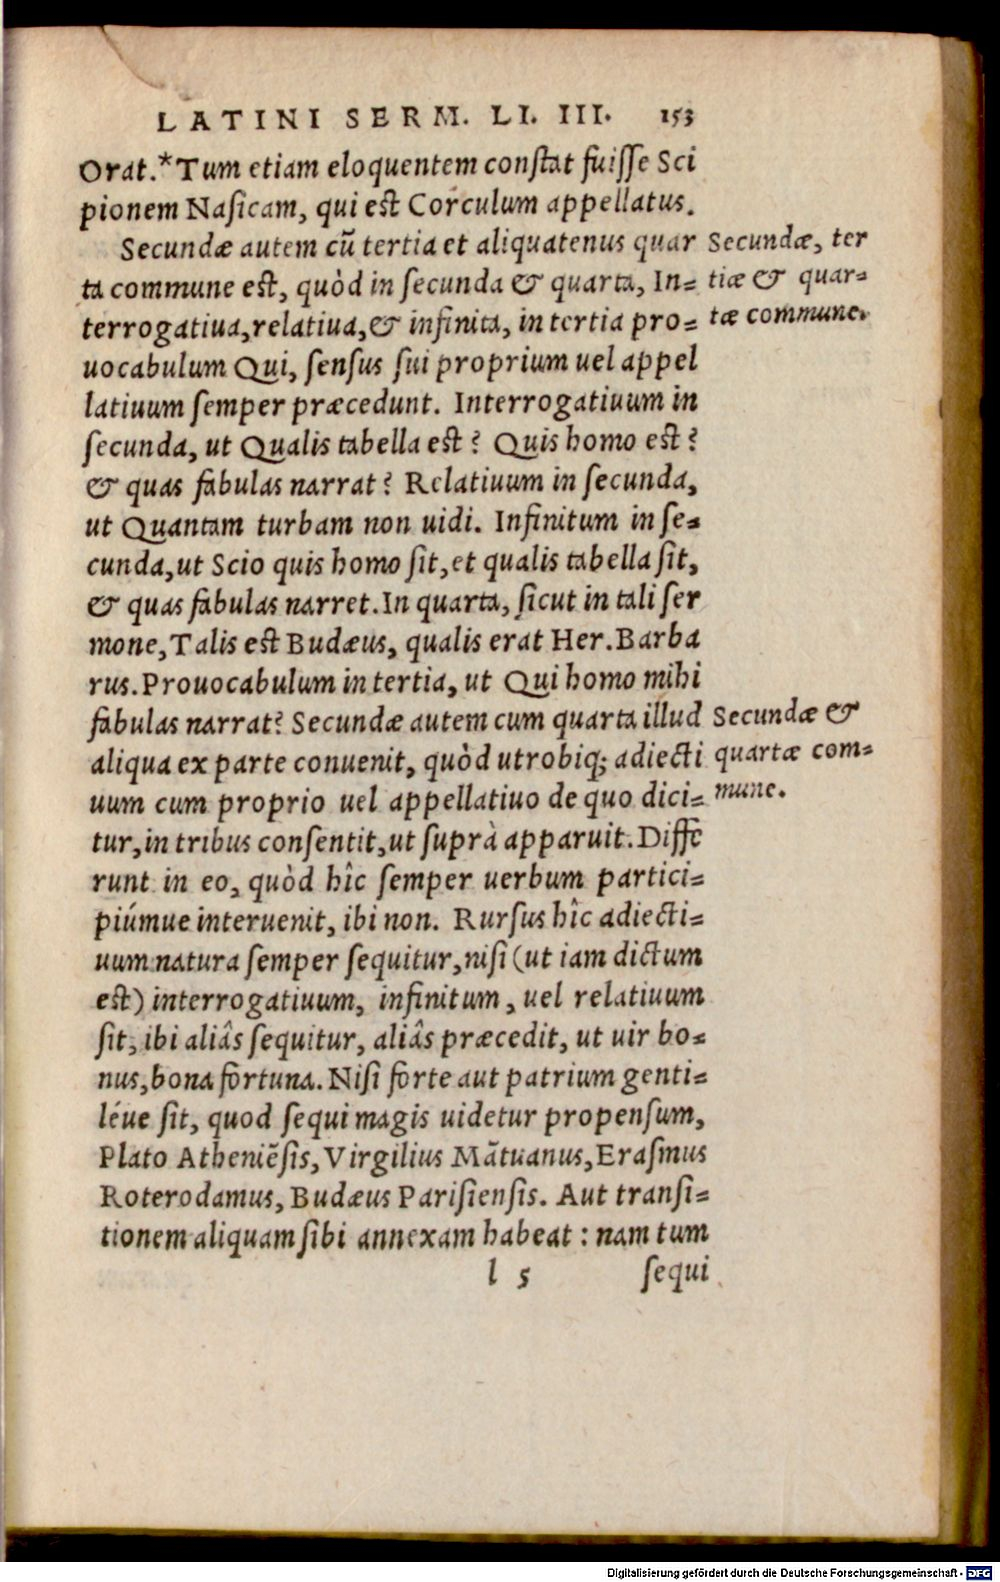 LATINI SERM. LI. III. 153
Orat.*Tum etiam eloquentem conſtat fuiſſe Sci
pionem Naſicam, qui eſt Corculum appellatus.
Secundæ autem cũ tertia et aliquatenus quar
ta commune eſt, quòd in ſecunda & quarta, In=
terrogatiua, relatiua, & infinita, in tertia pro=
uocabulum Qui, ſenſus ſui proprium uel appel
latiuum ſemper præcedunt. Interrogatiuum in
ſecunda, ut Qualis tabella eſt? Quis homo eſt?
& quas fabulas narrat? Relatiuum in ſecunda,
ut Quantam turbam non uidi. Infinitum in ſe=
cunda, ut Scio quis homo ſit, et qualis tabella ſit,
& quas fabulas narret. In quarta, ſicut in tali ſer
mone, Talis eſt Budæus, qualis erat Her. Barba
rus. Prouocabulum in tertia, ut Qui homo mihi
fabulas narrat? Secundæ autem cum quarta illud
aliqua ex parte conuenit, quòd utrobiq; adiecti
uum cum proprio uel appellatiuo de quo dici=
tur, in tribus conſentit, ut ſuprà apparuit. Diffe
runt in eo, quòd hîc ſemper uerbum partici=
piúmue interuenit, ibi non. Rurſus hîc adiecti=
uum natura ſemper ſequitur, niſi (ut iam dictum
eſt) interrogatiuum, infinitum, uel relatiuum
ſit, ibi aliâs ſequitur, aliâs præcedit, ut uir bo=
nus, bona fortuna. Niſi forte aut patrium genti=
léue ſit, quod ſequi magis uidetur propenſum,
Plato Atheniẽſis, Virgilius Mãtuanus, Eraſmus
Roterodamus, Budæus Pariſienſis. Aut tranſi=
tionem aliquam ſibi annexam habeat : nam tum
l 5 ſequi
Secundæ, ter
tiæ & quar=
tæ commune.
Secundæ &
quartæ com=
mune.
Digitalisierung gefördert durch die Deutsche Forschungsgemeinschaft - DFG